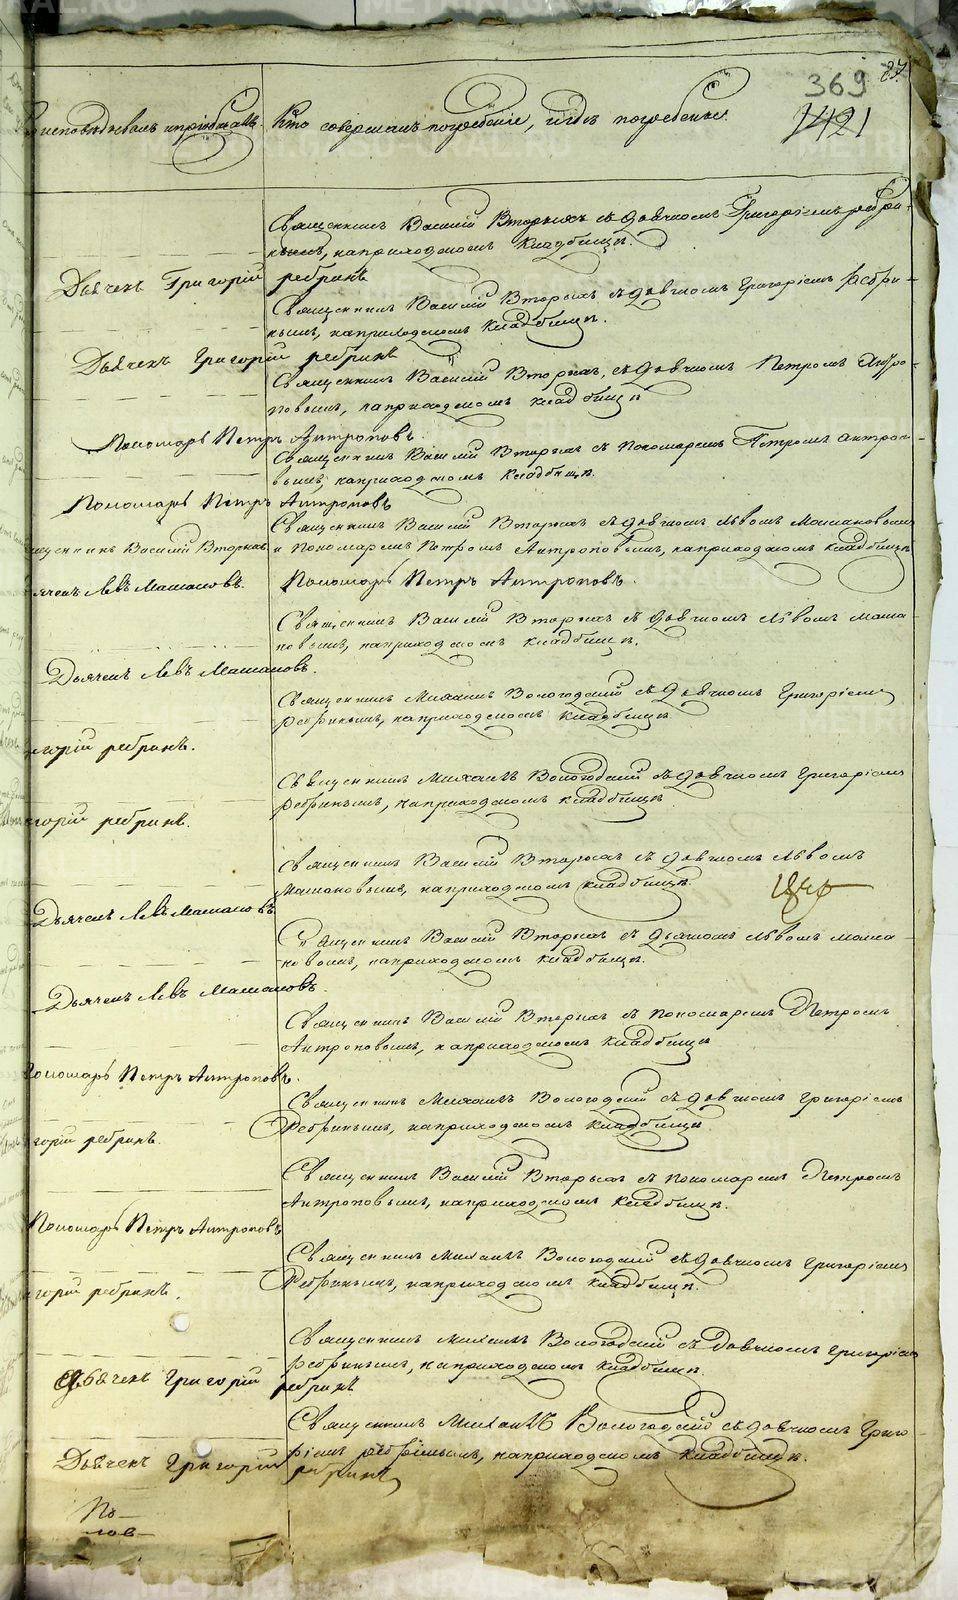 369
87
1421
исповѣдывалъ и пріобщалъ
Кто совершалъ погребеніе, и гдѣ погребены.
Священникъ Василій Вторыхъ съ дьячкомъ Григоріемъ Ребри-
нымъ, на приходскомъ кладбищѣ.
Дьячекъ Григорій Ребринъ
Священникъ Василій Вторыхъ съ дьячкомъ Григоріемъ Ребри-
нымъ, на приходскомъ кладбищѣ.
Дьячекъ Григорій Ребринъ
Священникъ Василій Вторыхъ, съ дьячкомъ Петромъ Антро-
повымъ, на приходскомъ кладбищѣ
Пономарь Петръ Антроповъ.
Священникъ Василій Вторыхъ съ пономаремъ Петромъ Антропо-
вымъ, на приходскомъ кладбищѣ.
Пономарь Петръ Антроповъ
Священникъ Василій Вторыхъ съ дьячкомъ Львомъ Машановымъ
священникъ Василій Вторыхъ
и пономаремъ Петромъ Антроповымъ, на приходскомъ кладбищѣ
дьячекъ Левъ Машановъ.
Пономарь Петръ Антроповъ.
Священникъ Василій Вторыхъ съ дьячкомъ Львомъ Маша-
новымъ, на приходскомъ кладбищѣ.
Дьячекъ Левъ Машановъ.
Священникъ Михаилъ Вологодскій съ дьячкомъ Григоріемъ
Ребринымъ, на приходскомъ кладбищѣ.
горій Ребринъ.
Священникъ Михаилъ Вологодскій съ дьячкомъ Григоріемъ
Ребринымъ, на приходскомъ кладбищѣ
горій Ребринъ.
Священникъ Василій Вторыхъ съ дьячкомъ Львомъ
Машановымъ, на приходскомъ кладбищѣ.
Дьячекъ Левъ Машановъ
Священникъ Василій Вторыхъ съ дьячкомъ Львомъ Маша-
новымъ, на приходскомъ кладбищѣ.
Дьячекъ Левъ Машановъ.
Священникъ Василій Вторыхъ съ пономаремъ Петромъ
Антроповымъ, на приходскомъ кладбищѣ
Пономарь Петръ Антроповъ.
Священникъ Михаилъ Вологодскій съ дьячкомъ Григоріемъ
Ребринымъ, на приходскомъ кладбищѣ
горій Ребринъ.
Священникъ Василій Вторыхъ съ пономаремъ Петромъ
Антроповымъ, на приходскомъ кладбищѣ.
Пономарь Петръ Антроповъ
Священникъ Михаилъ Вологодскій съ дьячкомъ Григоріемъ
Ребринымъ, на приходскомъ кладбищѣ.
горій Ребринъ.
Священникъ Михаилъ Вологодскій съ дьячкомъ Григоріемъ
Ребринымъ, на приходскомъ кладбищѣ.
Дьячекъ Григорій Ребринъ
Священникъ Михаилъ Вологодскій съ дьячкомъ Григо-
ріемъ Ребринымъ, на приходскомъ кладбищѣ.
Дьячекъ Григорій Ребринъ
По-
лов-